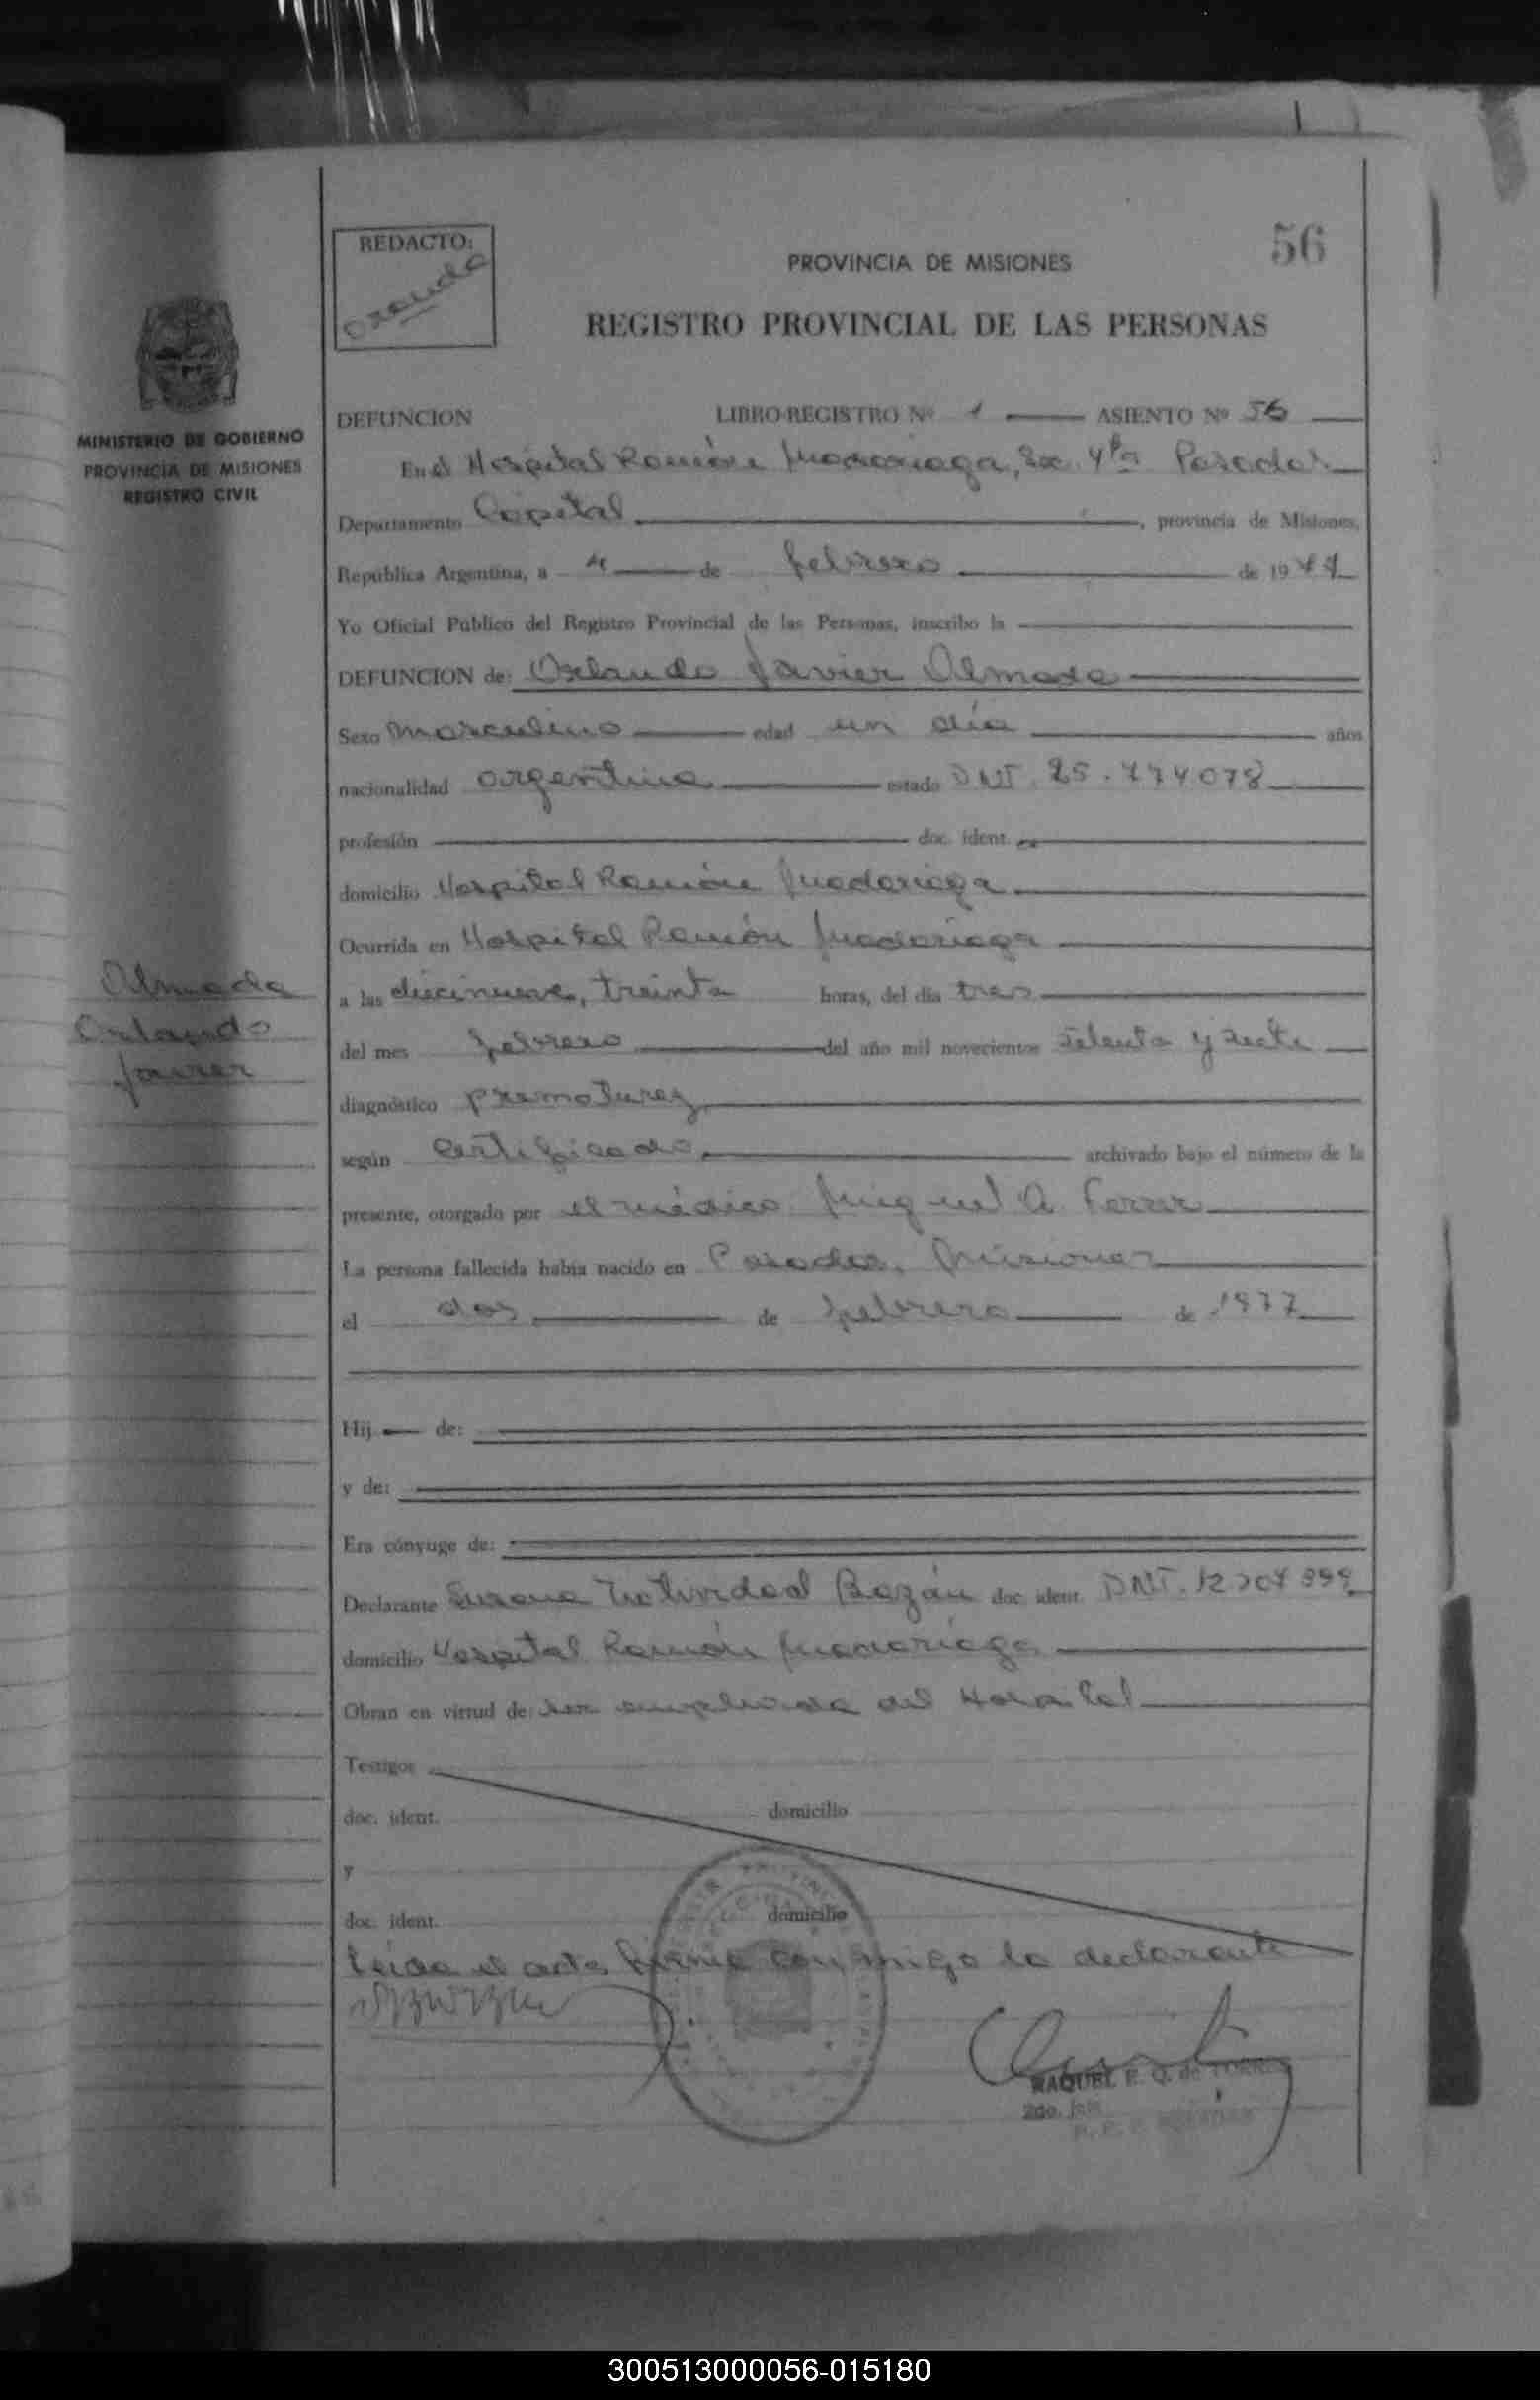 REDACTO:
PROVINCIA DE MISIONES
56
REGISTRO PROVINCIAL DE LAS PERSONAS
MINISTERIO DE GOBIERNO
PROVINCIA DE MISIONES
REGISTRO CIVIL
DEFUNCION LIBRO-REGISTRO Nº 1 ASIENTO Nº 56
En el Hospital Ramón Madariaga, Sec. 4ta Posadas
Departamento Capital, provincia de Misiones,
República Argentina, a 4 de febrero de 1977
Yo Oficial Público del Registro Provincial de las Personas, inscribo la
DEFUNCION de: Orlando Javier Almada
Sexo masculino edad un día años
nacionalidad argentina estado DNI. 25.774078
profesión doc. ident.
domicilio Hospital Ramón Madariaga
Ocurrida en Hospital Ramón Madariaga
Almada
Orlando
Javier
a las diecinueve, treinta horas, del día tres
del mes febrero del año mil novecientos setenta y siete
diagnóstico prematurez
según certificado archivado bajo el número de la
presente, otorgado por el médico Miguel A. Ferrer
La persona fallecida había nacido en Posadas, Misiones
el dos de febrero de 1977
Hij de:
y de:
Era cónyuge de:
Declarante Susana Natividad Bazán doc. ident. DNI. 12
domicilio Hospital Ramón Madariaga
Obran en virtud de: ser empleada del Hospital
Testigos
doc. ident. domicilio
y
doc. ident. domicilio
Leída el acta, firma conmigo la declarante
RAQUEL E. Q. de TORRES
2do. Jefe
300513000056-015180